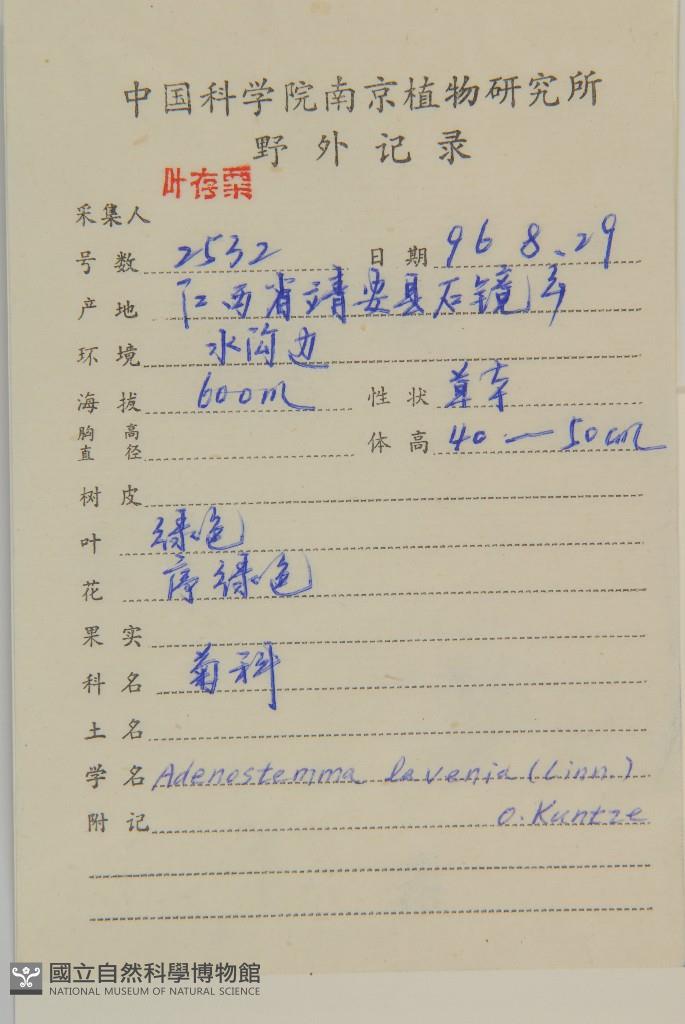 中国科学院南京植物研究所
野外记录
叶存粟
采集人
号数 2532 日期 96 8.29
产地 江西省靖安县石镜
环境 水沟边
海拔 600m 性状 草本
胸高直径 体高 40—50cm
树皮
叶 绿色
花 序绿色
果实
科名 菊科
土名
学名 Adenostemma lavenia (Linn.)
附记 O. Kuntze
國立自然科學博物館
NATIONAL MUSEUM OF NATURAL SCIENCE